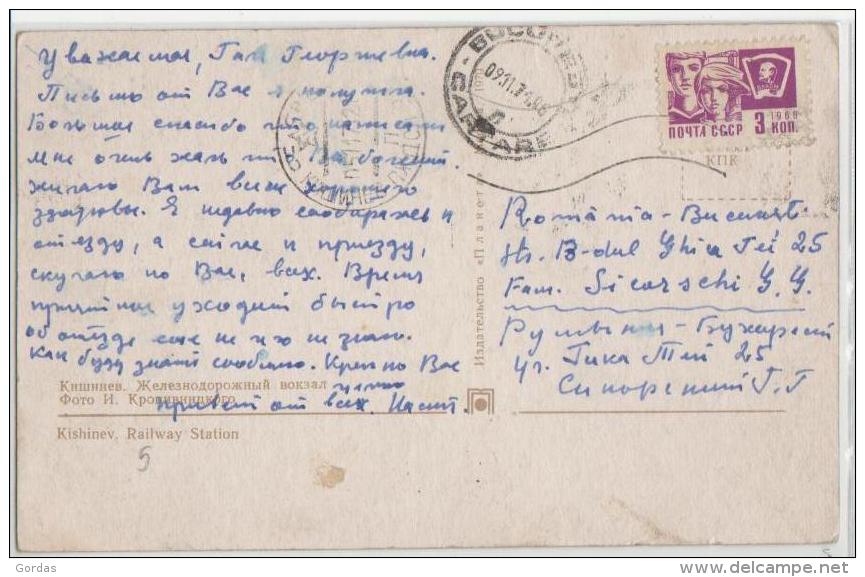 Уважаемая, Гая Георгиевна.
Письмо от Вас я получила.
Большое спасибо что написали
Мне очень жаль что Вы болели.
желаю Вам всего хорошего
здоровья. Я недавно собиралась к
отъезду, а сейчас к приезду,
скучаю по Вас, всех. Время
приятное уходит быстро
об отъезде еще не чего не знаю.
Как буду знать сообщю. Крепко Вас
целую
привет от всех.
Кишинев. Железнодорожный вокзал
Фото И. Кропивницкого
Kishinev. Railway Station
5
Издательство «Планета»
BUCURESTI
CARTARE
09.11.71
КИШИНЕВ
ПОЧТА СССР 3 КОП.
1966
КПК
România - Bucureşti
str. B-dul Ghica Tei 25
Fam. Sicorschi G. G.
Румыния - Бухарест
ул. Гика Тей 25
Сикорский Г. Г